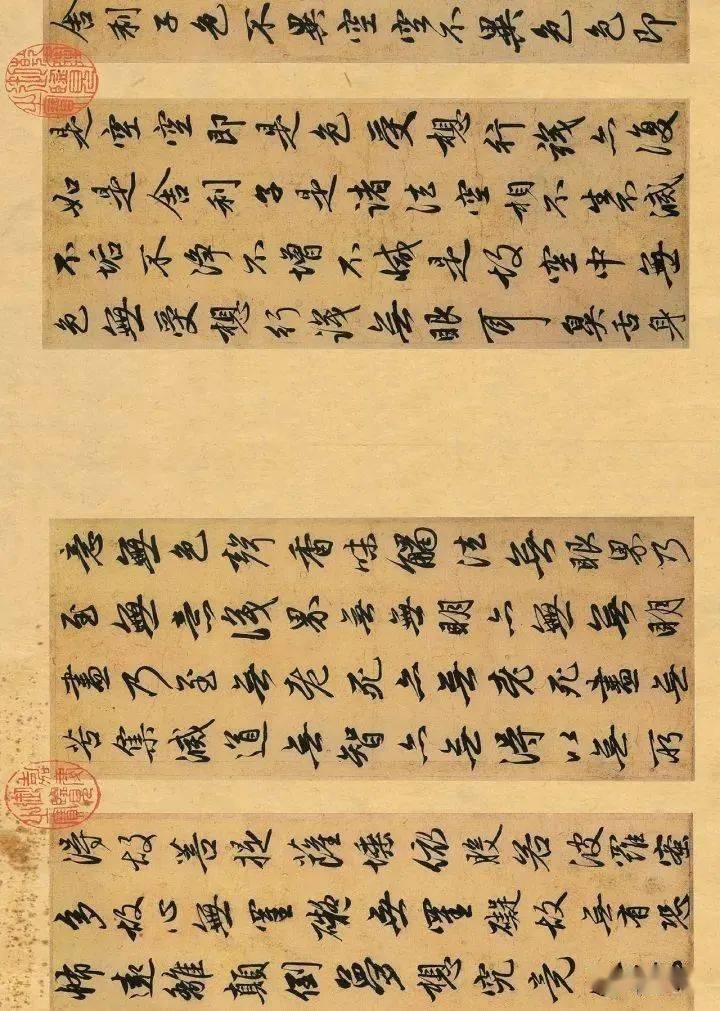 舍利子色不異空空不異色色即
是空空即是色受想行識亦復
如是舍利子是諸法空相不生不滅
不垢不淨不增不減是故空中無
色無受想行識無眼耳鼻舌身
意無色聲香味觸法無眼界乃
至無意識界無無明亦無無明
盡乃至無老死亦無老死盡無
苦集滅道無智亦無得以無所
得故菩提薩埵依般若波羅蜜
多故心無罣礙無罣礙故無有恐
怖遠離顛倒夢想究竟